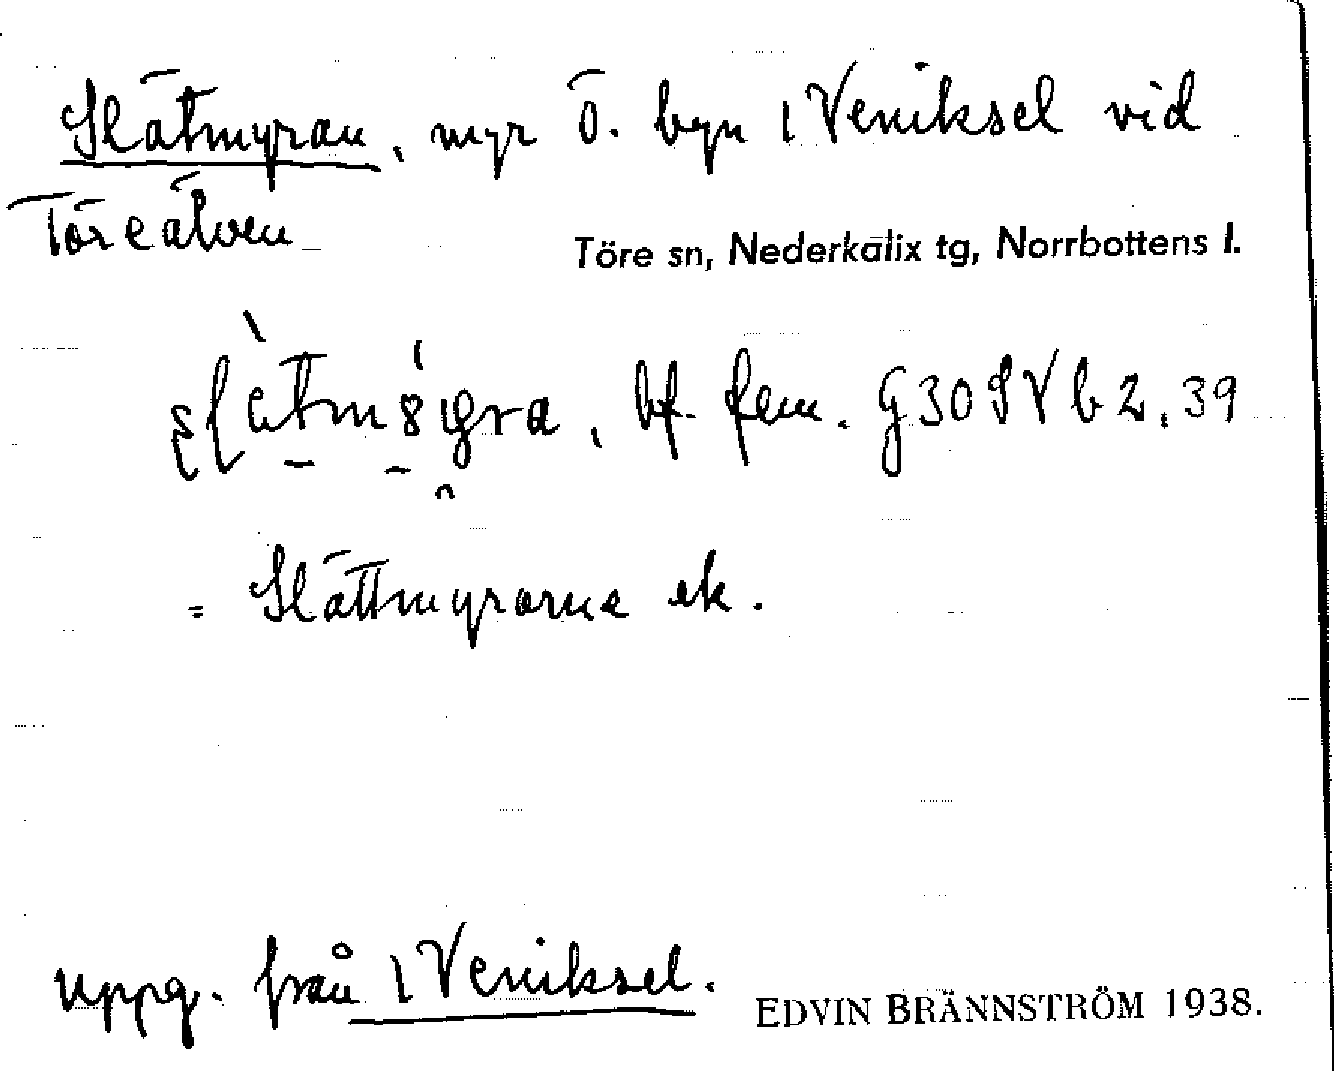 Slåtmyran, myr Ö. byn i Veniksel vid
Töreälven
Töre sn, Nederkalix tg, Norrbottens l.
bf. fem. G30SVb2.39
= Slåttmyrarna ek.
uppg. från i Veniksel.
EDVIN BRÄNNSTRÖM 1938.